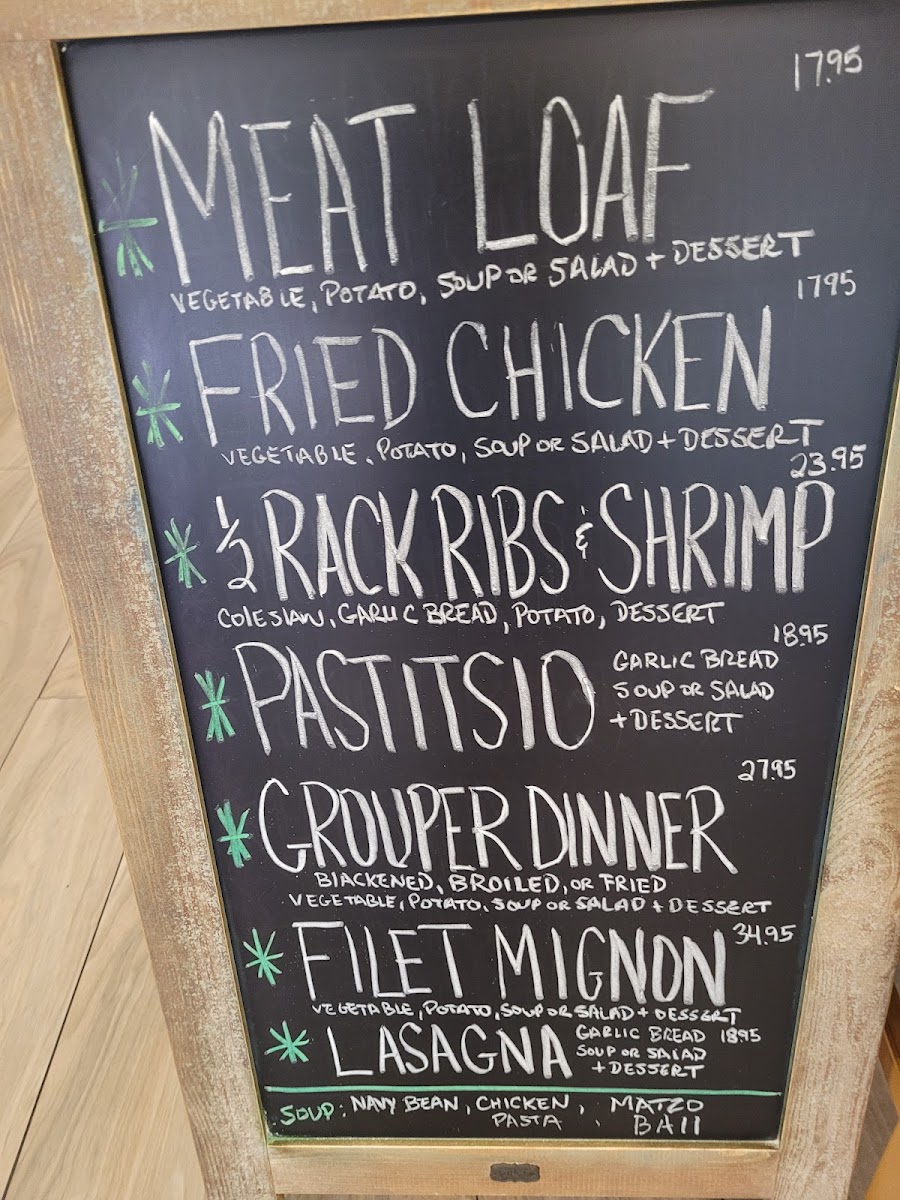 17.95
MEAT LOAF
VEGETABLE, POTATO, SOUP OR SALAD + DESSERT
1795
FRIED CHICKEN
VEGETABLE, POTATO, SOUP OR SALAD + DESSERT
23.95
1/2 RACK RIBS & SHRIMP
COLESLAW, GARLIC BREAD, POTATO, DESSERT
18.95
PASTITSIO
GARLIC BREAD
SOUP OR SALAD
+ DESSERT
27.95
GROUPER DINNER
BLACKENED, BROILED, OR FRIED
VEGETABLE, POTATO, SOUP OR SALAD + DESSERT
FILET MIGNON 34.95
VEGETABLE, POTATO, SOUP OR SALAD + DESSERT
LASAGNA
GARLIC BREAD 18.95
SOUP OR SALAD
+ DESSERT
SOUP: NAVY BEAN, CHICKEN, MATZO
PASTA, BALL